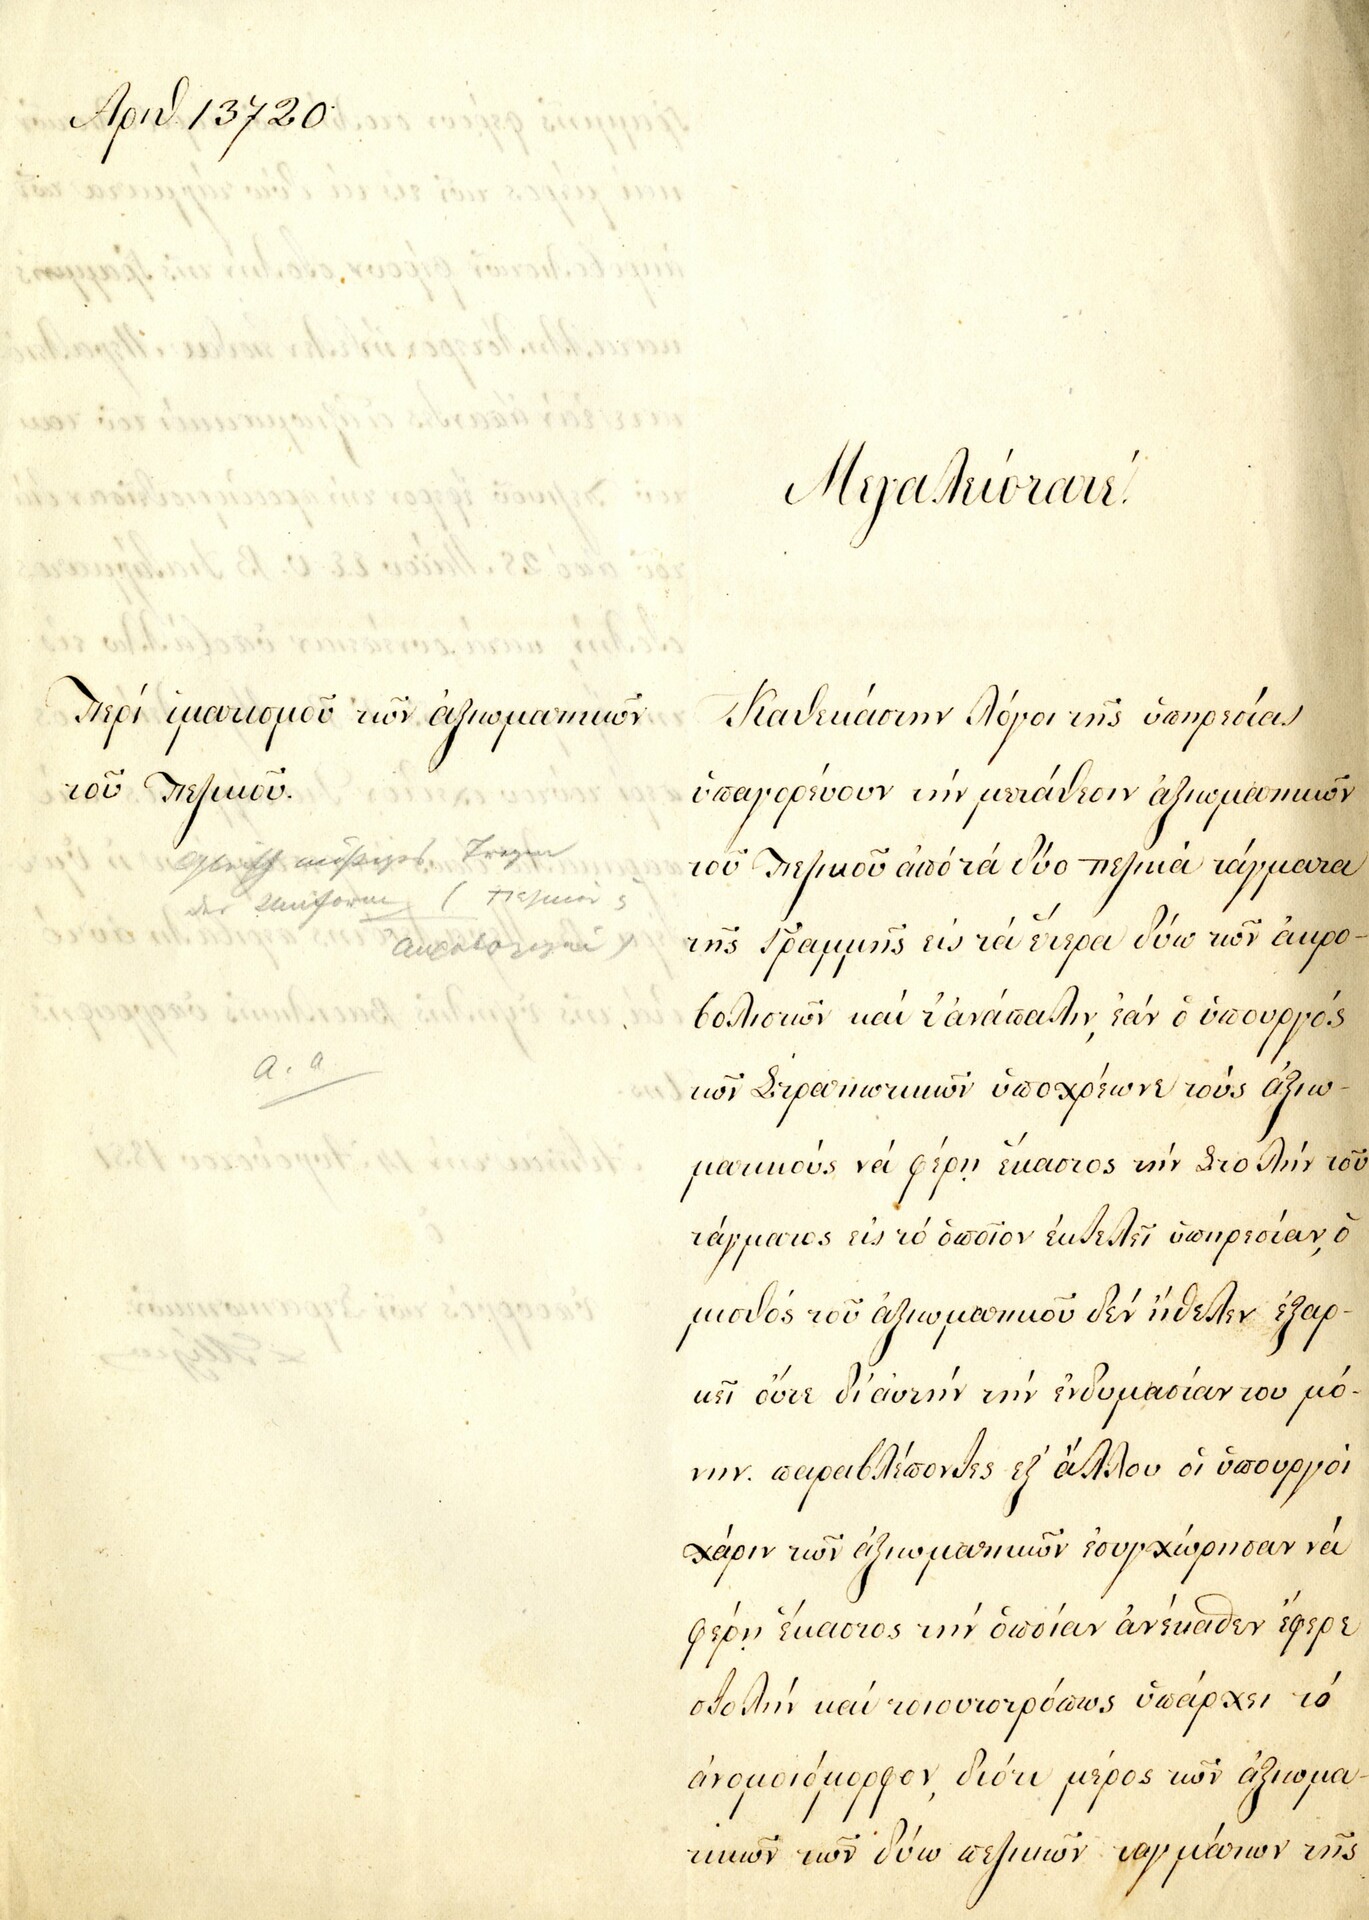 Αριθ. 13720
Μεγαλειότατε!
Περί ἱματισμοῦ τῶν ἀξιωματικῶν
τοῦ Πεζικοῦ.
der Uniform ( πεζικόν ς
ἀκροβολισταί )
a. a
Καθεκάστην λόγοι τῆς ὑπηρεσίας
ὑπαγορεύουν τήν μετάθεσιν ἀξιωματικῶν
τοῦ Πεζικοῦ ἀπό τά δύο πεζικά τάγματα
τῆς Γραμμῆς εἰς τά ἕτερα δύω τῶν ἀκρο-
βολιστῶν καί τ' ἀνάπαλιν, ἐάν ὁ ὑπουργός
τῶν Στρατιωτικῶν ὑποχρέωνε τούς ἀξιω-
ματικούς νά φέρῃ ἕκαστος τήν Στολήν τοῦ
τάγματος εἰς τό ὁποῖον ἐκτελεῖ ὑπηρεσίαν, ὁ
μισθός τοῦ ἀξιωματικοῦ δέν ἤθελεν ἐξαρ-
κεῖ οὔτε δι' αὐτήν τήν ἐνδυμασίαν του μό-
νην. παραβλέποντες ἐξ ἄλλου οἱ ὑπουργοί
χάριν τῶν ἀξιωματικῶν ἐσυγχώρησαν νά
φέρῃ ἕκαστος τήν ὁποίαν ἀνέκαθεν ἔφερε
στολήν καί τοιουτοτρόπως ὑπάρχει τό
ἀνομοιόμορφον, διότι μέρος τῶν ἀξιωμα-
τικῶν τῶν δύω πεζικῶν ταγμάτων τῆς